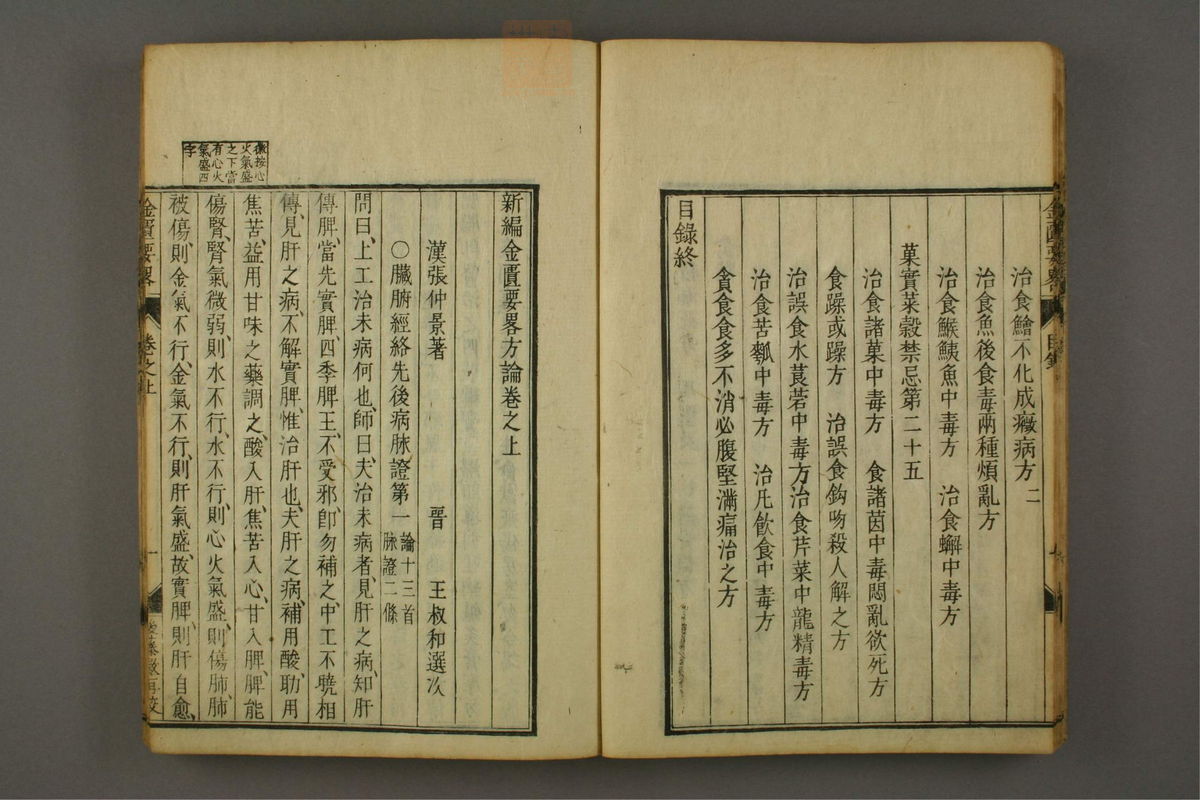 治食鱠不化成癥病方二
治食魚後食毒兩種煩亂方
治食鯸鮧魚中毒方　治食蠏中毒方
菓實菜穀禁忌第二十五
治食諸菓中毒方　食諸茵中毒悶亂欲死方
食躁或躁方　治誤食鈎吻殺人解之方
治誤食水莨菪中毒方治食芹菜中龍精毒方
治食苦瓠中毒方　治凡飲食中毒方
貪食食多不消必腹堅滿痛治之方
目錄終
目錄
新編金匱要畧方論卷之上
漢張仲景著　晉　王叔和選次
〇臟腑經絡先後病脉證第一 論十三首 脉證二條
問曰、上工治未病何也、師曰、夫治未病者、見肝之病、知肝
傳脾、當先實脾、四季脾王、不受邪、卽勿補之、中工不曉相
傳、見肝之病、不解實脾、惟治肝也、夫肝之病、補用酸、助用
焦苦、益用甘味之藥調之、酸入肝、焦苦入心、甘入脾、脾能
傷腎、腎氣微弱、則水不行、水不行、則心火氣盛、則傷肺、肺
被傷、則金氣不行、金氣不行、則肝氣盛、故實脾、則肝自愈、
徵按心
火氣盛
之下當
有心火
氣盛四
字
金匱要畧　卷之上　一